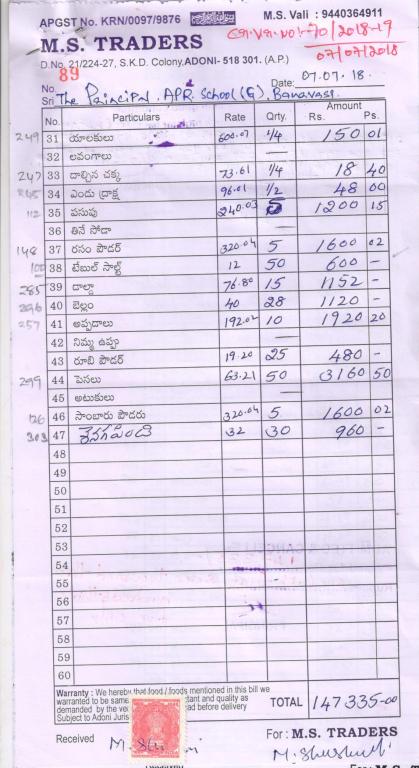 APGST No. KRN/0097/9876 M.S. Vali : 9440364911
M.S. TRADERS 2018-19
D.No. 21/224-27, S.K.D. Colony, ADONI- 518 301. (A.P.) 07/07/2018
No. 89 Date: 07.07.18.
Sri The Principal, APR School (G), Banavasi
No. Particulars Rate Qrty. Amount Rs. Ps.
249 31 యాలకులు 600.07 1/4 150 01
32 లవంగాలు —
247 33 దాల్చిన చక్క 73.61 1/4 18 40
34 ఎండు ద్రాక్ష 96.01 1/2 48 00
112 35 పసుపు 240.03 5 1200 15
36 తినే సోడా —
148 37 రసం పౌడర్ 320.04 5 1600 02
38 టేబుల్ సాల్ట్ 12 50 600 —
285 39 డాల్డా 76.80 15 1152 -
296 40 బెల్లం 40 28 1120 -
257 41 అప్పడాలు 192.02 10 1920 20
42 నిమ్మ ఉప్పు —
43 రూబి పౌడర్ 19.20 25 480 -
299 44 పెసలు 63.21 50 3160 50
45 అటుకులు
126 46 సాంబారు పౌడరు 320.04 5 1600 02
303 47 శెనగపిండి 32 30 960 -
48
49
50
51
52
53
54
55
56
57
58
59
60
Warranty : We hereby that food / foods mentioned in this bill we
warranted to be same tant and quality as
demanded by the ve ad before delivery
Subject to Adoni Juris
TOTAL 147335-00
Received For : M.S. TRADERS